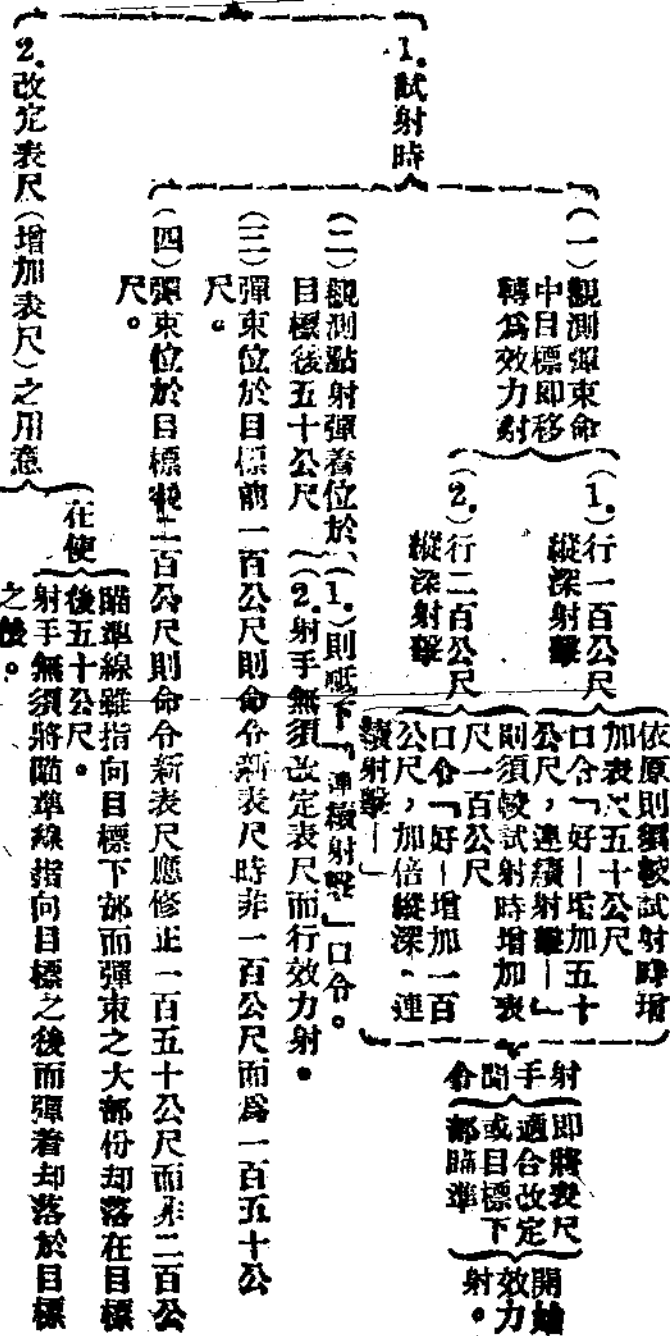 1.試射時
(一)觀測彈束命
中目標即移
轉爲效力射
1.)行一百公尺
縱深射擊
依原則須較試射時增
加表尺五十公尺
口令「好—增加五十
公尺,連續射擊—」
2.)行二百公尺
縱深射擊
則須較試射時增加表
尺一百公尺
口令「好—增加一百
公尺,加倍縱深、連
續射擊—」
射手聞
令
即將表尺
適合改定
或目標下
部瞄準
開始
效力
射。
(二)觀測點射彈着位於
目標後五十公尺
(1.)則呼令「連續射擊」口令。
(2.射手無須改定表尺而行效力射。
(三)彈束位於目標前一百公尺則命令新表尺時非一百公尺而爲一百五十公
尺。
(四)彈束位於目標後二百公尺則命令新表尺應修正一百五十公尺而非二百公
尺。
2.改定表尺(增加表尺)之用意
在使
瞄準線雖指向目標下部而彈束之大部份却落在目標
後五十公尺。
射手無須將瞄準線指向目標之後而彈着却落於目標
之後。